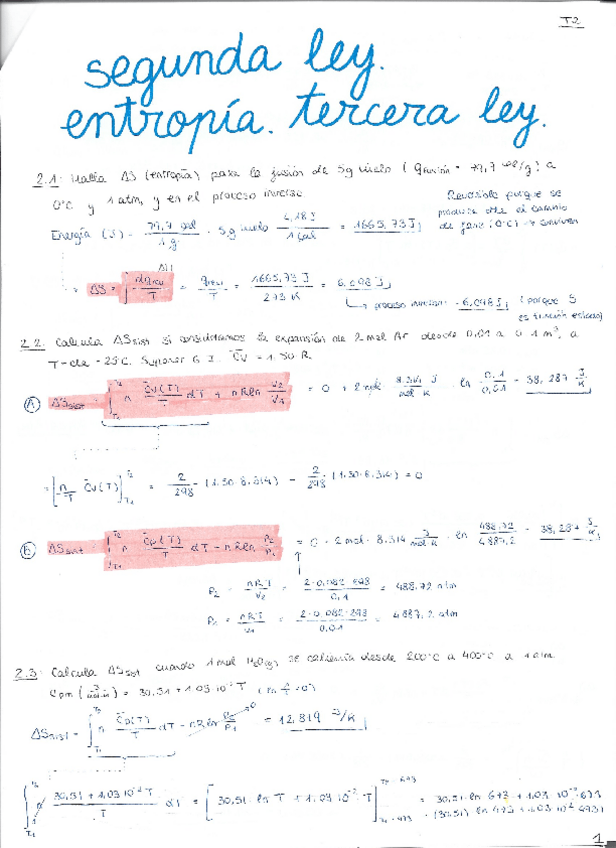 T2
segunda ley.
entropía. tercera ley.
2.1: Halla ΔS (entropía) para la fusión de 5g hielo (qfusión = 79,7 cal/g) a
0°C y 1 atm, y en el proceso inverso.
Reversible porque se
produce
de fase (0°C)
Energía (J) = 79,7 cal / 1 g · 5g hielo · 4,18 J / 1 cal = 1665,73 J;
ΔH
= ΔS = ∫ dqrev / T = qrev / T = 1665,73 J / 273 K = 6,098 J;
proceso inverso: -6,098 J; (porque S
es función estado)
2.2: Calcula ΔSsist si consideramos la expansión de 2 mol Ar desde 0,01 a 0,1 m³, a
T=cte = 25°C. Suponer G.I. C̄v = 1.50 R.
A ΔSsist = ∫ n C̄v(T) / T dT + nRln V2/V1 = 0 + 2 mol · 8.314 J / mol K · ln 0,1 / 0,01 = 38,287 J/K
= [n/T C̄v(T)] T2 T1 = 2/298 · (1.50·8.314) - 2/298 (1.50·8.314) = 0
b ΔSsist = ∫ n C̄p(T) / T dT - nRln P2/P1 = 0 - 2 mol · 8.314 J / mol K · ln 488,72 / 4887,2 = 38,287 J/K
P2 = nRT / V2 = 2·0,082·298 / 0,1 = 488,72 atm
P1 = nRT / V1 = 2·0,082·298 / 0,01 = 4887,2 atm
2.3: Calcula ΔSsist cuando 1 mol H2O(g) se calienta desde 200°C a 400°C a 1 atm.
Cpm = 30,51 + 1.03·10⁻² T
ΔSsist = ∫ n C̄p(T) / T dT - nRln P2/P1 = 12,819 J/K
0
∫ 30,51 + 1.03·10⁻² T / T dT = [30,51 · ln T + 1,03·10⁻² · T] T2=673 T1=473 = 30,51·ln 673 + 1,03·10⁻² · 673
- (30,51 ln 473 + 1.03·10⁻² 473)
1